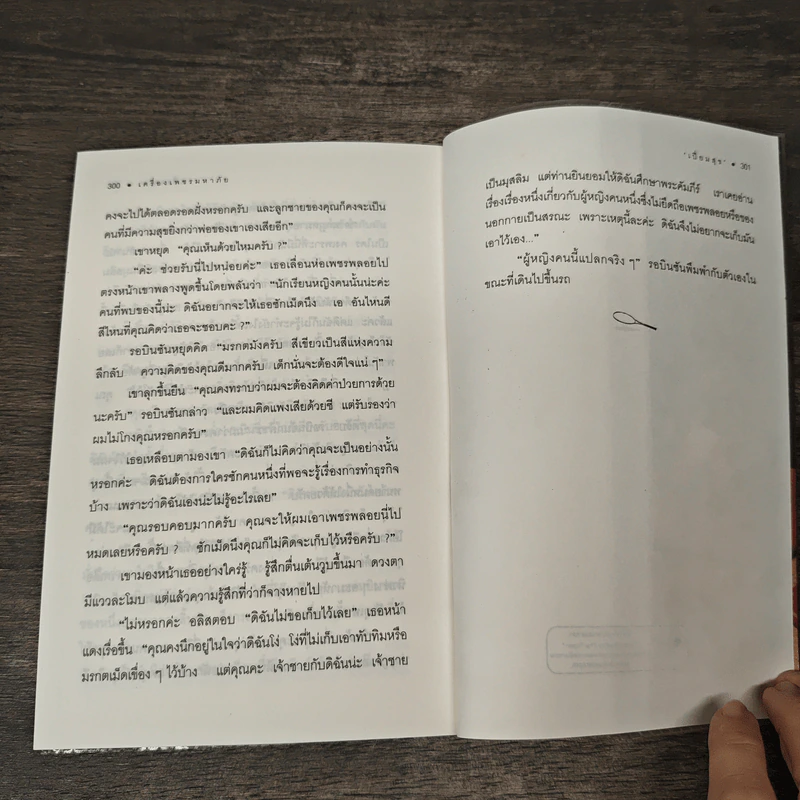 300 ● เครื่องเพชรมหาภัย
คงจะไปได้ตลอดรอดฝั่งหรอกครับ และลูกชายของคุณก็คงจะเป็น
คนที่มีความสุขยิ่งกว่าพ่อของเขาเองเสียอีก”
เขาหยุด “คุณเห็นด้วยไหมครับ ?”
“ค่ะ ช่วยรับนี่ไปหน่อยค่ะ” เธอเลื่อนห่อเพชรพลอยไป
ตรงหน้าเขาพลางพูดขึ้นโดยพลันว่า “นักเรียนหญิงคนนั้นน่ะค่ะ
คนที่พบของนี้น่ะ ดิฉันอยากจะให้เธอซักเม็ดนึง เอ อันไหนดี
สีไหนที่คุณคิดว่าเธอจะชอบคะ ?”
รอบินซันหยุดคิด “มรกตมังครับ สีเขียวเป็นสีแห่งความ
ลึกลับ ความคิดของคุณดีมากครับ เด็กนั่นจะต้องดีใจแน่ ๆ”
เขาลุกขึ้นยืน “คุณคงทราบว่าผมจะต้องคิดค่าป่วยการด้วย
นะครับ” รอบินซันกล่าว “และผมคิดแพงเสียด้วยซี แต่รับรองว่า
ผมไม่โกงคุณหรอกครับ”
เธอเหลือบตามองเขา “ดิฉันก็ไม่คิดว่าคุณจะเป็นอย่างนั้น
หรอกค่ะ ดิฉันต้องการใครซักคนหนึ่งที่พอจะรู้เรื่องการทำธุรกิจ
บ้าง เพราะว่าดิฉันเองน่ะไม่รู้อะไรเลย”
“คุณรอบคอบมากครับ คุณจะให้ผมเอาเพชรพลอยนี่ไป
หมดเลยหรือครับ ? ซักเม็ดนึงคุณก็ไม่คิดจะเก็บไว้หรือครับ ?”
เขามองหน้าเธออย่างใคร่รู้ รู้สึกตื่นเต้นวูบขึ้นมา ดวงตา
มีแววละโมบ แต่แล้วความรู้สึกที่ว่าก็จางหายไป
“ไม่หรอกค่ะ อลิสตอบ “ดิฉันไม่ขอเก็บไว้เลย” เธอหน้า
แดงเรื่อขึ้น “คุณคงนึกอยู่ในใจว่าดิฉันโง่ โง่ที่ไม่เก็บเอาทับทิมหรือ
มรกตเม็ดเขื่อง ๆ ไว้บ้าง แต่คุณคะ เจ้าชายกับดิฉันน่ะ เจ้าชาย
‘เบื่อนสุข’ ● 301
เป็นมุสลิม แต่ท่านยินยอมให้ดิฉันศึกษาพระคัมภีร์ เราเคยอ่าน
เรื่องเรื่องหนึ่งเกี่ยวกับผู้หญิงคนหนึ่งซึ่งไม่ยึดถือเพชรพลอยหรือของ
นอกกายเป็นสรณะ เพราะเหตุนี้ละค่ะ ดิฉันจึงไม่อยากจะเก็บมัน
เอาไว้เอง...”
“ผู้หญิงคนนี้แปลกจริง ๆ” รอบินซันพึมพำกับตัวเองใน
ขณะที่เดินไปขึ้นรถ